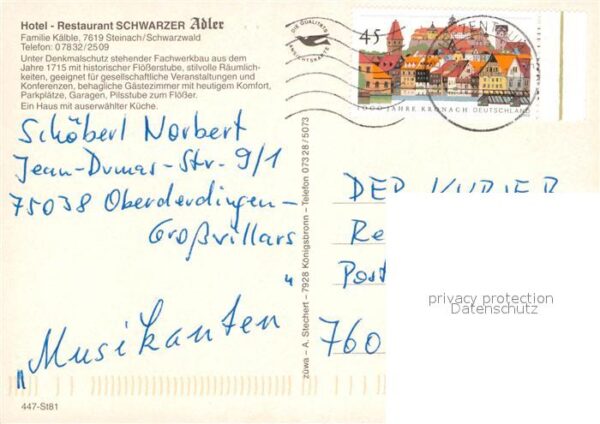 Hotel - Restaurant SCHWARZER Adler
Familie Kälble, 7619 Steinach/Schwarzwald
Telefon: 07832/2509
Unter Denkmalschutz stehender Fachwerkbau aus dem
Jahre 1715 mit historischer Flößerstube, stilvolle Räumlich-
keiten, geeignet für gesellschaftliche Veranstaltungen und
Konferenzen, behagliche Gästezimmer mit heutigem Komfort,
Parkplätze, Garagen, Pilsstube zum Flößer.
Ein Haus mit auserwählter Küche.
DIE QUALITÄTS
ANSICHTSKARTE
45
1000 JAHRE KRONACH DEUTSCHLAND
Schöberl Norbert
Jean-Dumas-Str. 9/1
75038 Oberderdingen-
Großvillars
"Musikanten"
züwa - A. Stechert - 7928 Königsbronn - Telefon 07328/5073
DER KURIER
Re
Post
760
privacy protection
Datenschutz
447-St81